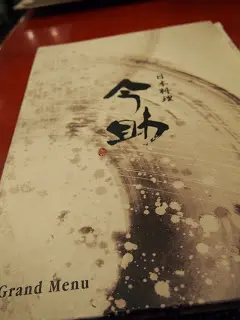 日本料理
今助
Grand Menu